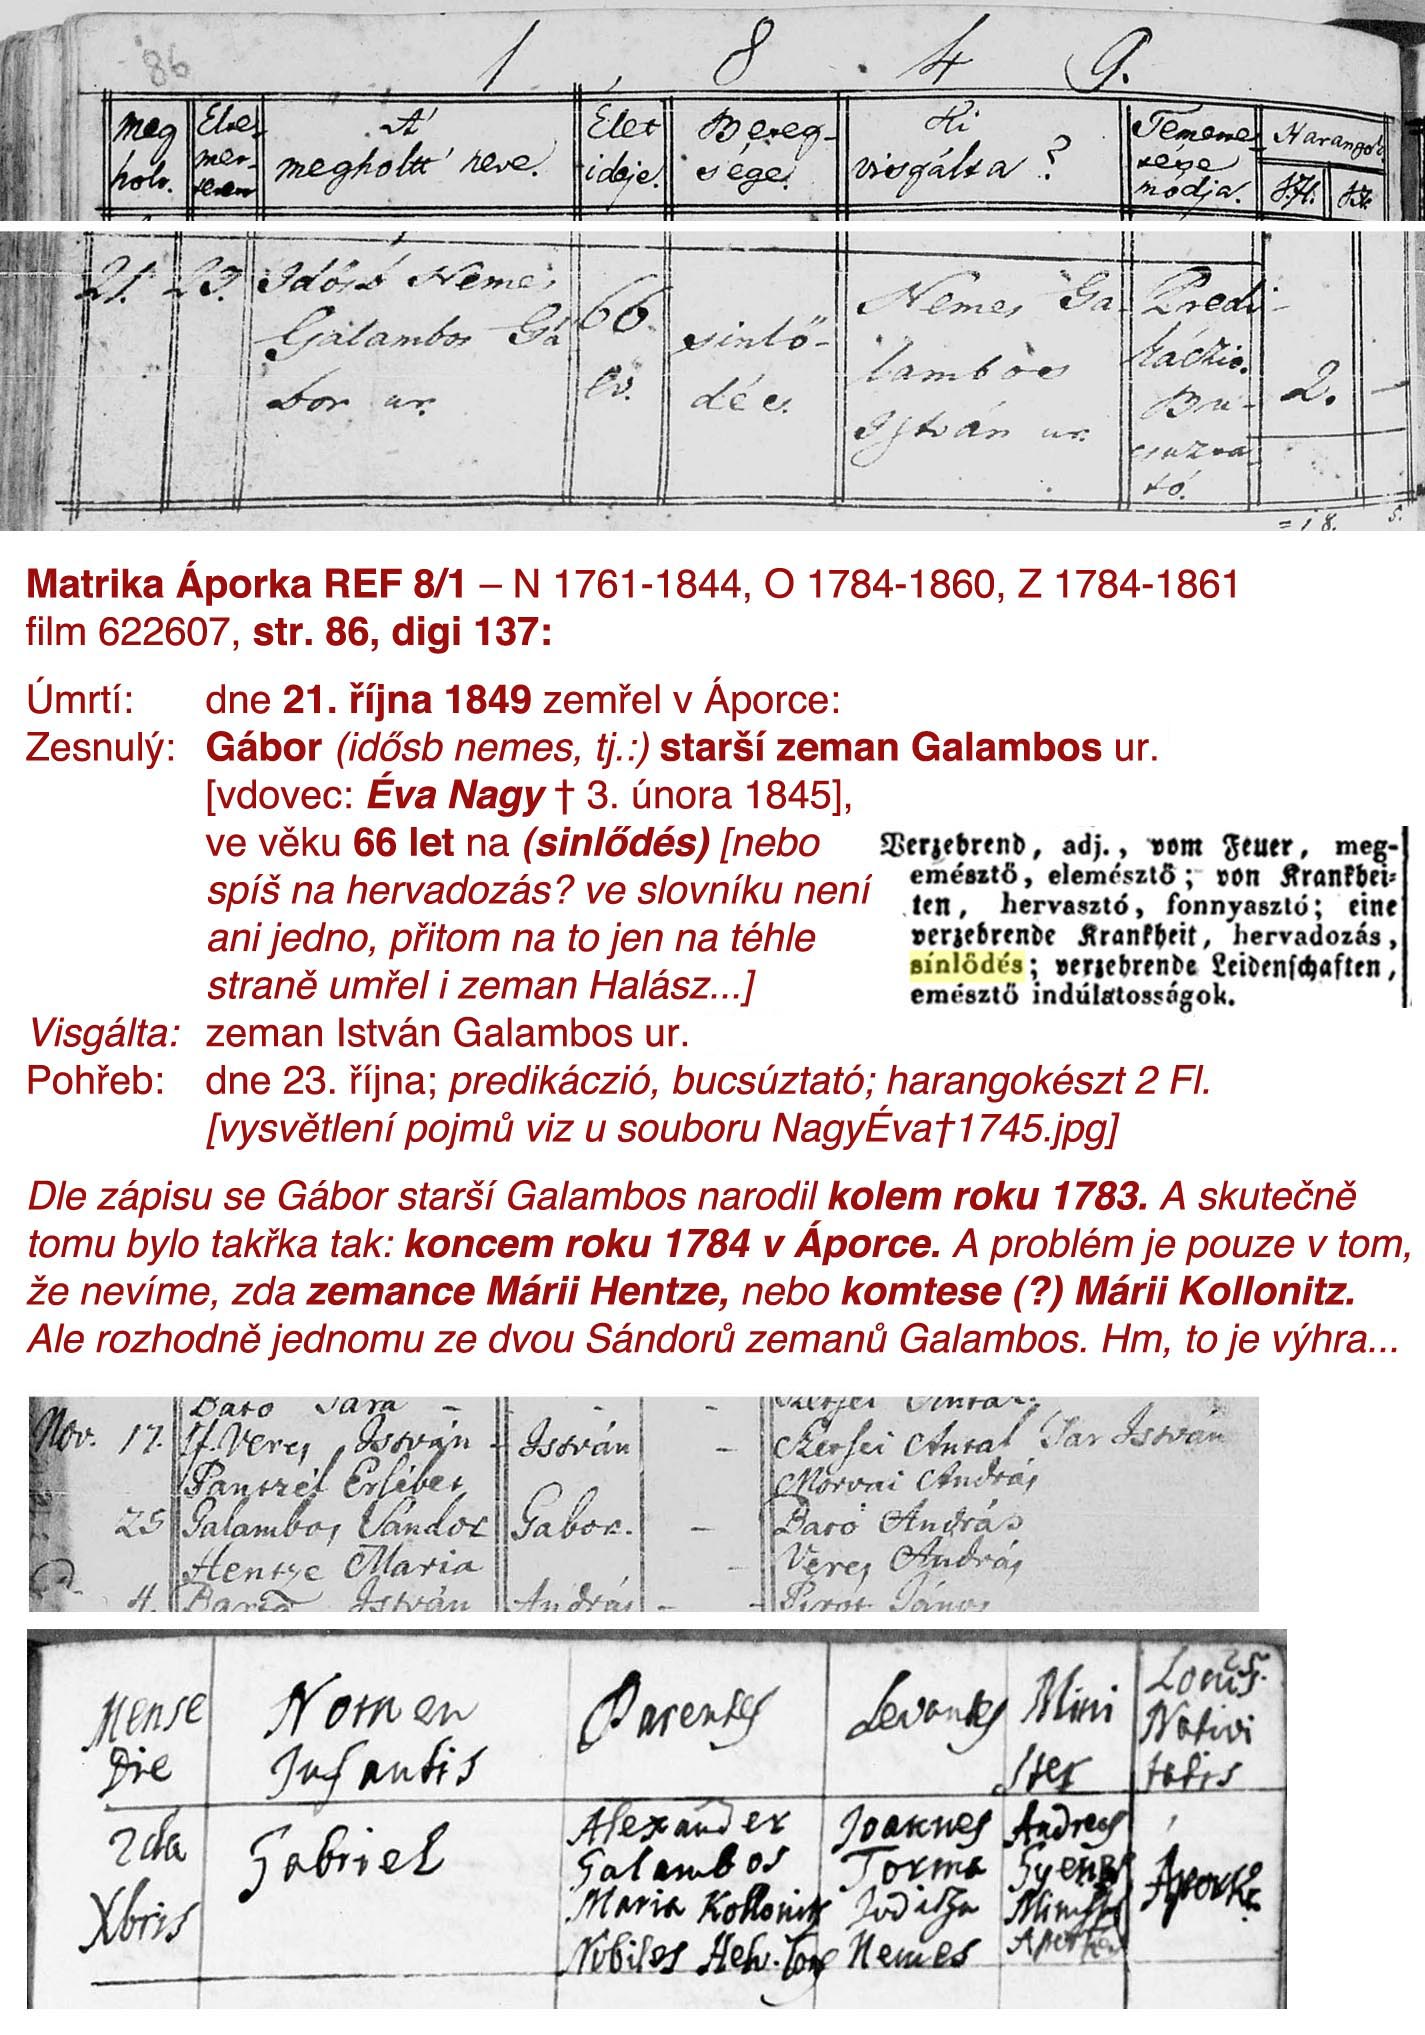 86
1 8 4 9.
meg holt. Elte- met- teten A' megholtt' neve. Élet ideje. Beteg- sége. Ki visgálta? Temete- tése módja. Harangoz
21. 23. Idősb Nemes Galambos Gá- bor ur. 66 év. sinlő- dés. Nemes Ga- lambos István ur. Predi- káczio. Bu- csuzta- tó. 2. –
= 18. 5.
Matrika Áporka REF 8/1 – N 1761-1844, O 1784-1860, Z 1784-1861
film 622607, str. 86, digi 137:
Úmrtí: dne 21. října 1849 zemřel v Áporce:
Zesnulý: Gábor (idősb nemes, tj.:) starší zeman Galambos ur.
[vdovec: Éva Nagy † 3. února 1845],
ve věku 66 let na (sinlődés) [nebo
spíš na hervadozás? ve slovníku není
ani jedno, přitom na to jen na téhle
straně umřel i zeman Halász...]
Verzehrend, adj., vom Feuer, meg-
emésztő, elemésztő; von Krankhei-
ten, hervasztó, fonnyasztó; eine
verzehrende Krankheit, hervadozás,
sínlődés; verzehrende Leidenschaften,
emésztő indúlatosságok.
Visgálta: zeman István Galambos ur.
Pohřeb: dne 23. října; predikáczió, bucsúztató; harangokészt 2 Fl.
[vysvětlení pojmů viz u souboru NagyÉva†1745.jpg]
Dle zápisu se Gábor starší Galambos narodil kolem roku 1783. A skutečně
tomu bylo takřka tak: koncem roku 1784 v Áporce. A problém je pouze v tom,
že nevíme, zda zemance Márii Hentze, nebo komtese (?) Márii Kollonitz.
Ale rozhodně jednomu ze dvou Sándorů zemanů Galambos. Hm, to je výhra...
Nov. 17. If. Veres István – István – Kersei Antal Tar István
Pantzél Ersébet Morvai András
25 Galambos Sándor Gabor. – Baró András
Hentze Maria – Veres András
4. István András – – János
Mense Die Nomen Infantis Parentes Levantes Mini ster Locus Nativi tatis
25.
2da Xbris Gabriel Alexander Galambos Maria Kollonitz Nobiles Helv. Conf Joannes Torma Juditha Nemes Andreas Gyenes Minister Aporka